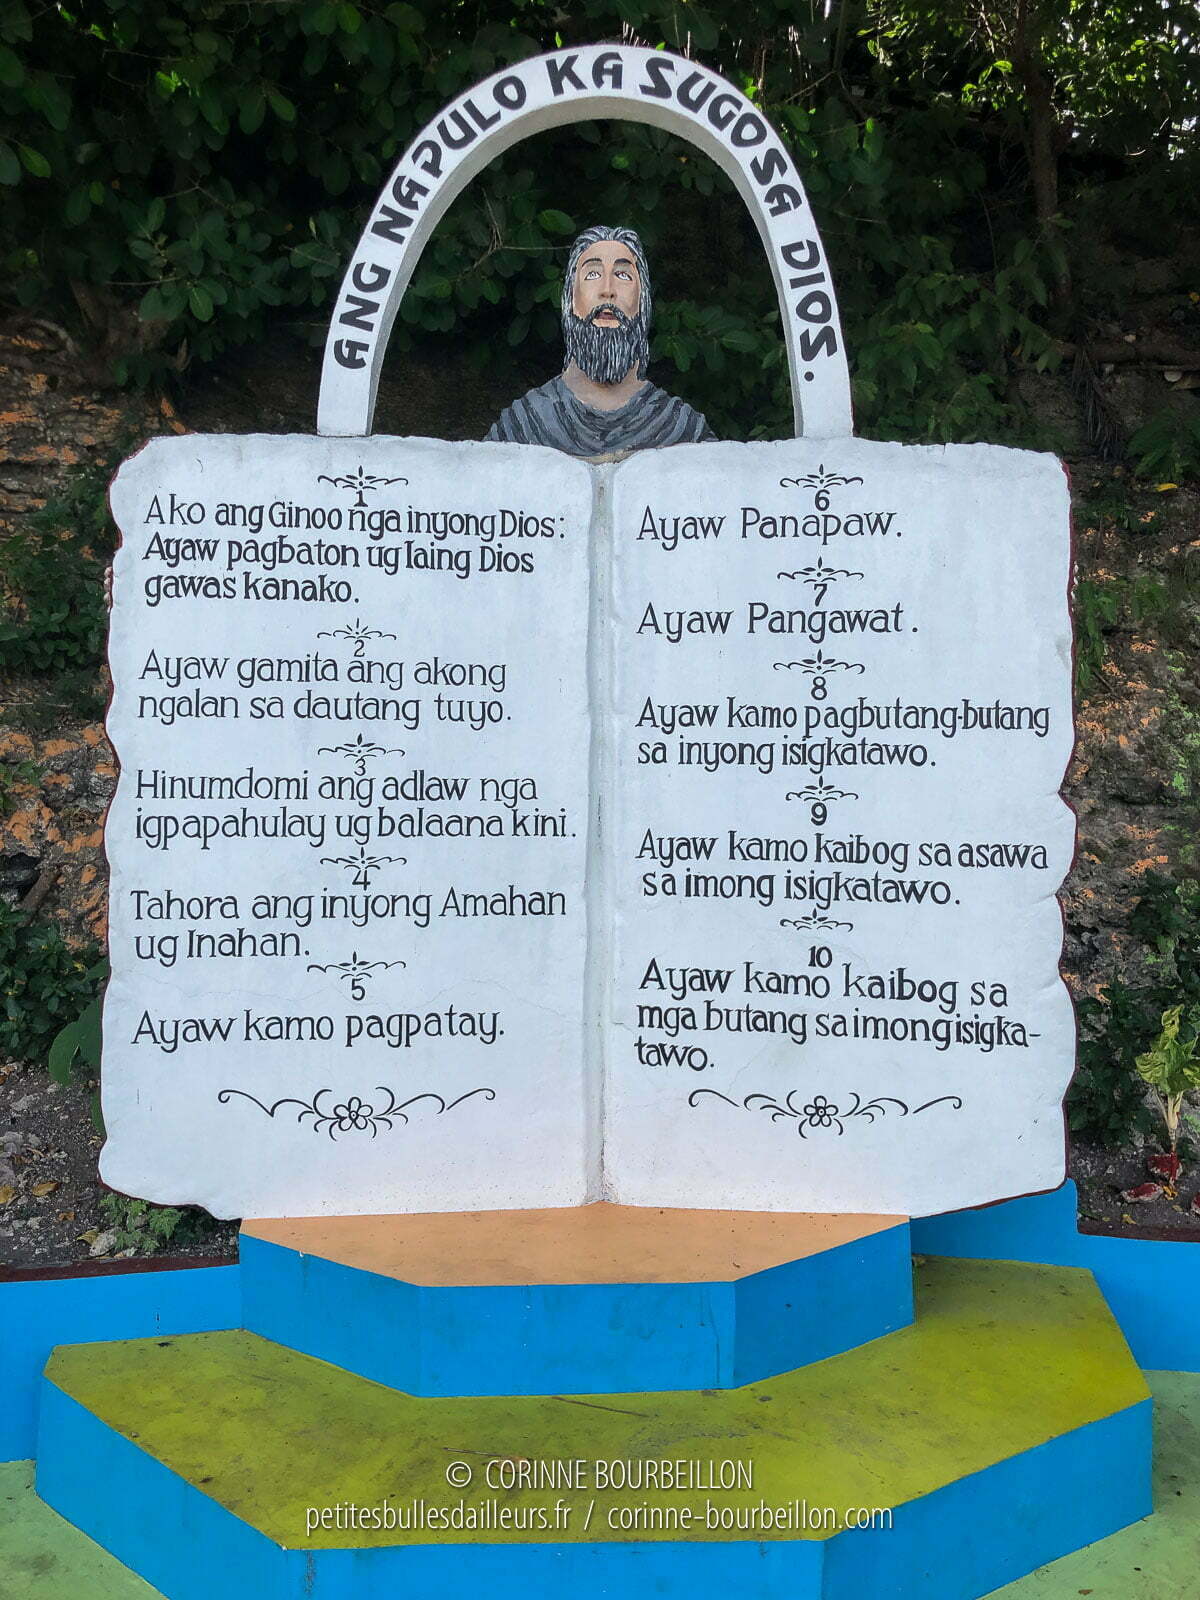 ANG NAPULO KA SUGO SA DIOS.
1
Ako ang Ginoo nga inyong Dios:
Ayaw pagbaton ug laing Dios
gawas kanako.
2
Ayaw gamita ang akong
ngalan sa dautang tuyo.
3
Hinumdomi ang adlaw nga
igpapahulay ug balaana kini.
4
Tahora ang inyong Amahan
ug Inahan.
5
Ayaw kamo pagpatay.
6
Ayaw Panapaw.
7
Ayaw Pangawat.
8
Ayaw kamo pagbutang-butang
sa inyong isigkatawo.
9
Ayaw kamo kaibog sa asawa
sa imong isigkatawo.
10
Ayaw kamo kaibog sa
mga butang sa imong isigka-
tawo.
© CORINNE BOURBEILLON
petitesbullesdailleurs.fr / corinne-bourbeillon.com